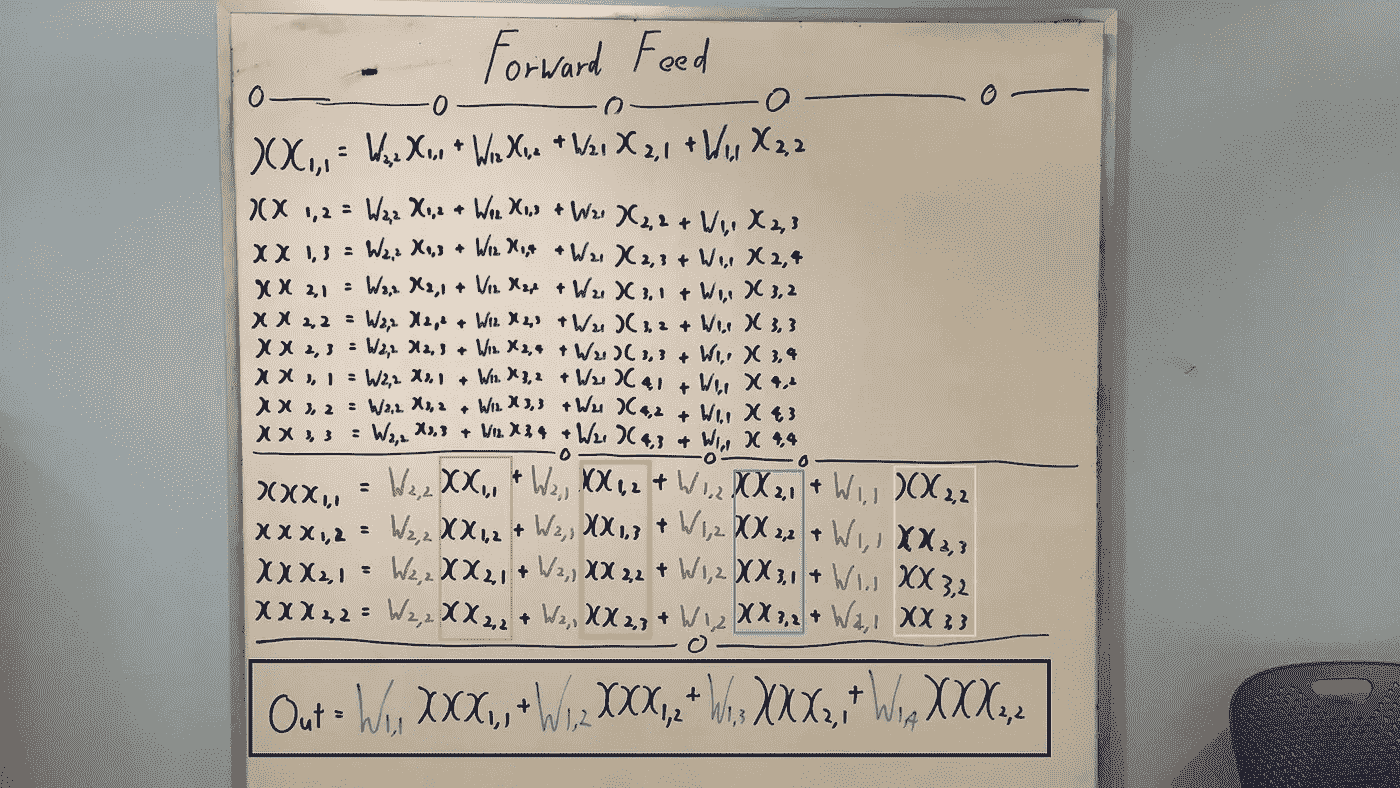 Forward Feed
XX1,1 = W2,2 X1,1 + W12 X1,2 + W21 X2,1 + W1,1 X2,2
XX 1,2 = W2,2 X1,2 + W12 X1,3 + W21 X2,2 + W1,1 X2,3
XX 1,3 = W2,2 X1,3 + W12 X1,4 + W21 X2,3 + W1,1 X2,4
XX 2,1 = W2,2 X2,1 + W12 X2,2 + W21 X3,1 + W1,1 X3,2
XX 2,2 = W2,2 X2,2 + W12 X2,3 + W21 X3,2 + W1,1 X3,3
XX 2,3 = W2,2 X2,3 + W12 X2,4 + W21 X3,3 + W1,1 X3,4
XX 3,1 = W2,2 X3,1 + W12 X3,2 + W21 X4,1 + W1,1 X4,2
XX 3,2 = W2,2 X3,2 + W12 X3,3 + W21 X4,2 + W1,1 X4,3
XX 3,3 = W2,2 X3,3 + W12 X3,4 + W21 X4,3 + W1,1 X4,4
XXX1,1 = W2,2 XX1,1 + W2,1 XX1,2 + W1,2 XX2,1 + W1,1 XX2,2
XXX1,2 = W2,2 XX1,2 + W2,1 XX1,3 + W1,2 XX2,2 + W1,1 XX2,3
XXX2,1 = W2,2 XX2,1 + W2,1 XX2,2 + W1,2 XX3,1 + W1,1 XX3,2
XXX2,2 = W2,2 XX2,2 + W2,1 XX2,3 + W1,2 XX3,2 + XX3,3
Out = W1,1 XXX1,1 + W1,2 XXX1,2 + W1,3 XXX2,1 + W1,4 XXX2,2